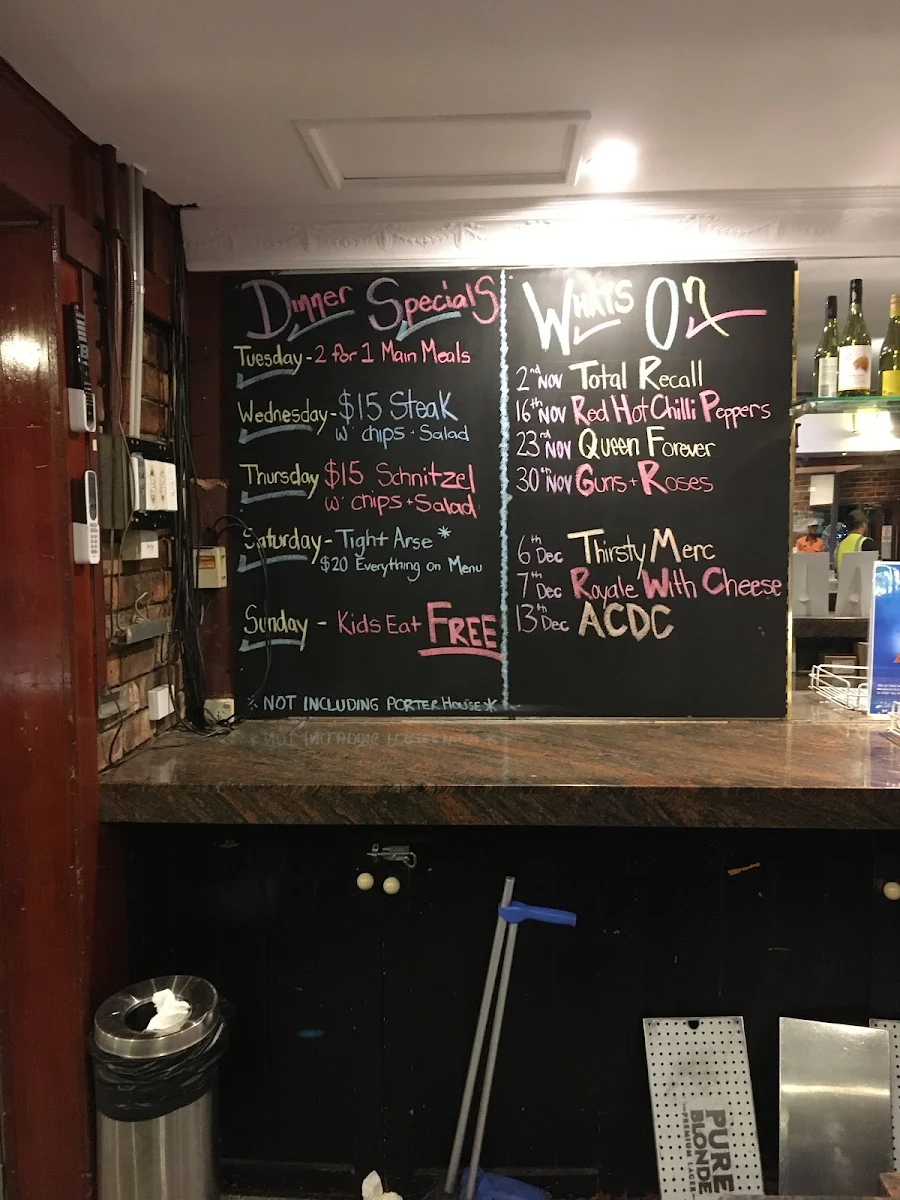 Dinner Specials
Tuesday - 2 for 1 Main Meals
Wednesday - $15 Steak
w' chips + Salad
Thursday $15 Schnitzel
w' chips + Salad
Saturday - Tight Arse *
$20 Everything on Menu
Sunday - Kids Eat FREE
* NOT INCLUDING PORTERHOUSE *
WHATS ON
2nd Nov Total Recall
16th Nov Red Hot Chilli Peppers
23rd Nov Queen Forever
30th Nov Guns + Roses
6th Dec Thirsty Merc
7th Dec Royale With Cheese
13th Dec ACDC
PURE
BLONDE
PREMIUM LAGER